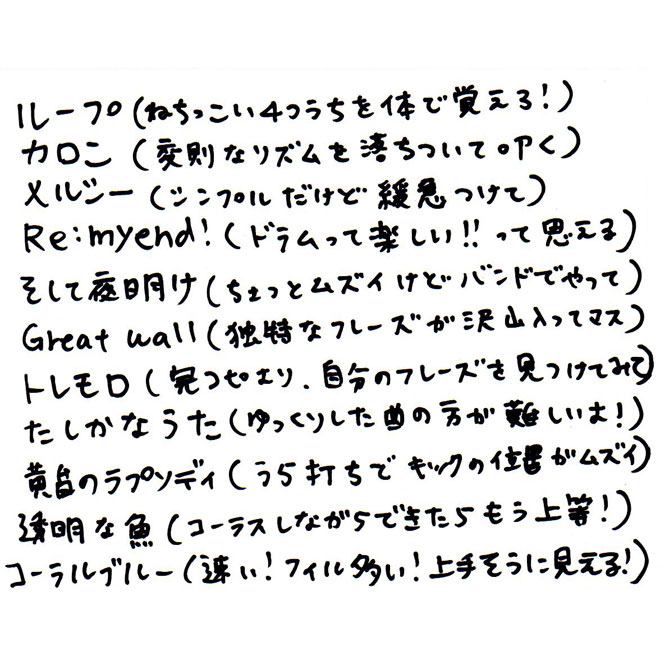 ループ(ねちっこい4つうちを体で覚える!)
カロン(変則なリズムを落ちついて叩く)
メルシー(シンプルだけど緩急つけて)
Re:myend!(ドラムって楽しい!!って思える)
そして夜明け(ちょっとムズイけどバンドでやって)
Great wall(独特なフレーズが沢山入ってマス)
トレモロ(完コピより、自分のフレーズを見つけてみて)
たしかなうた(ゆっくりした曲の方が難しいよ!)
黄昏のラプソディ(うら打ちでキックの位置がムズイ)
透明な魚(コーラスしながらできたらもう上等!)
コーラルブルー(速い!フィル多い!上手そうに見える!)